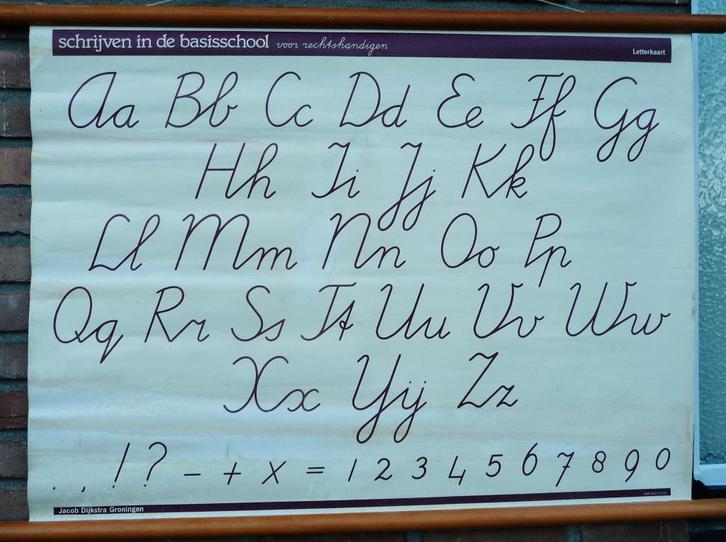 schrijven in de basisschool voor rechtshandigen
Letterkaart
Aa Bb Cc Dd Ee Ff Gg
Hh Ii Jj Kk
Ll Mm Nn Oo Pp
Qq Rr Ss Tt Uu Vv Ww
Xx Yij Zz
. , ! ? - + x = 1 2 3 4 5 6 7 8 9 0
Jacob Dijkstra Groningen